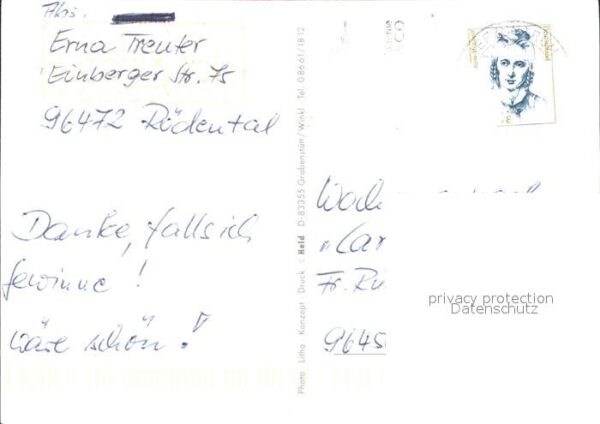 Abs.
Erna Treuter
Einberger Str. 75
96472 Rödental
Danke, falls ich
gewinne!
Wäre schön!
Photo Litho Konzept Druck : Held D-83355 Grabenstätt/Winkl Tel. 0 86 61/18 12
Fr. Rü
9645
privacy protection
Datenschutz